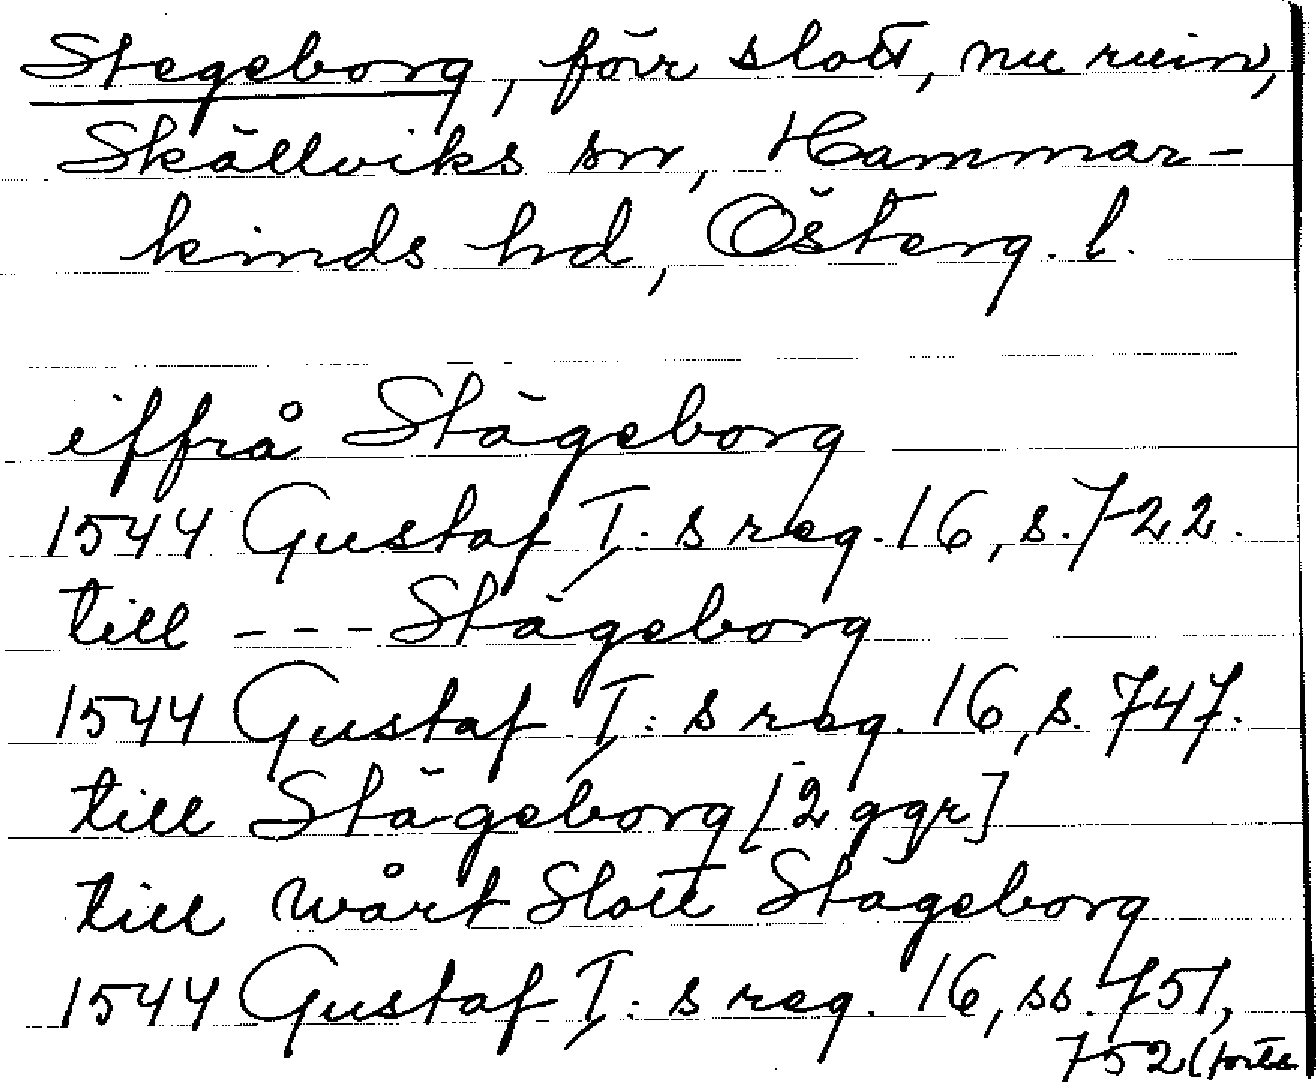 Stegeborg, förr slott, nu ruin,
Skällviks sn, Hammar-
kinds hd, Österg. l.
iffrå Stägeborg
1544 Gustaf I:s reg. 16, s. 722.
till --- Stägeborg
1544 Gustaf I:s reg. 16, s. 747.
till Stägeborg [2 ggr]
till wårt Slott Stageborg
1544 Gustaf I:s reg. 16, ss. 751,
752 (forts